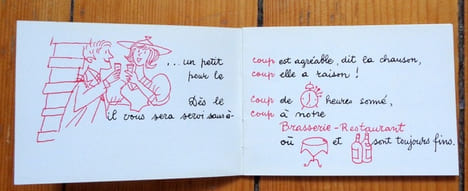 ...un petit
pour le
Dès le
il vous sera servi sans à-
coup est agréable, dit la chanson,
coup elle a raison !
Coup de heures sonné,
coup à notre
Brasserie-Restaurant
où et sont toujours fins.